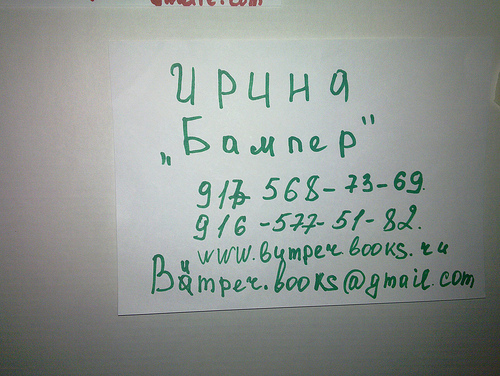 ИРИНА
„Бампер"
917 568-73-69.
916-577-51-82.
www.bymper.books.ru
Bumper.books@gmail.com